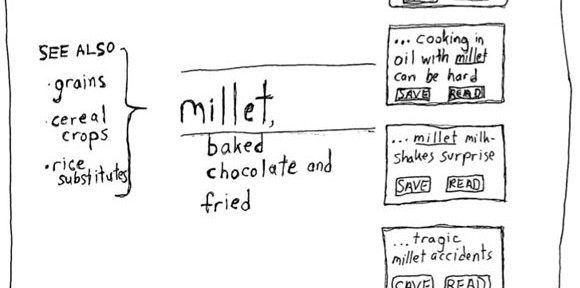 SEE ALSO
· grains
· cereal
crops
· rice
substitutes
millet,
baked
chocolate and
fried
... cooking in
oil with millet
can be hard
SAVE READ
... millet milk-
shakes surprise
SAVE READ
... tragic
millet accidents
SAVE READ